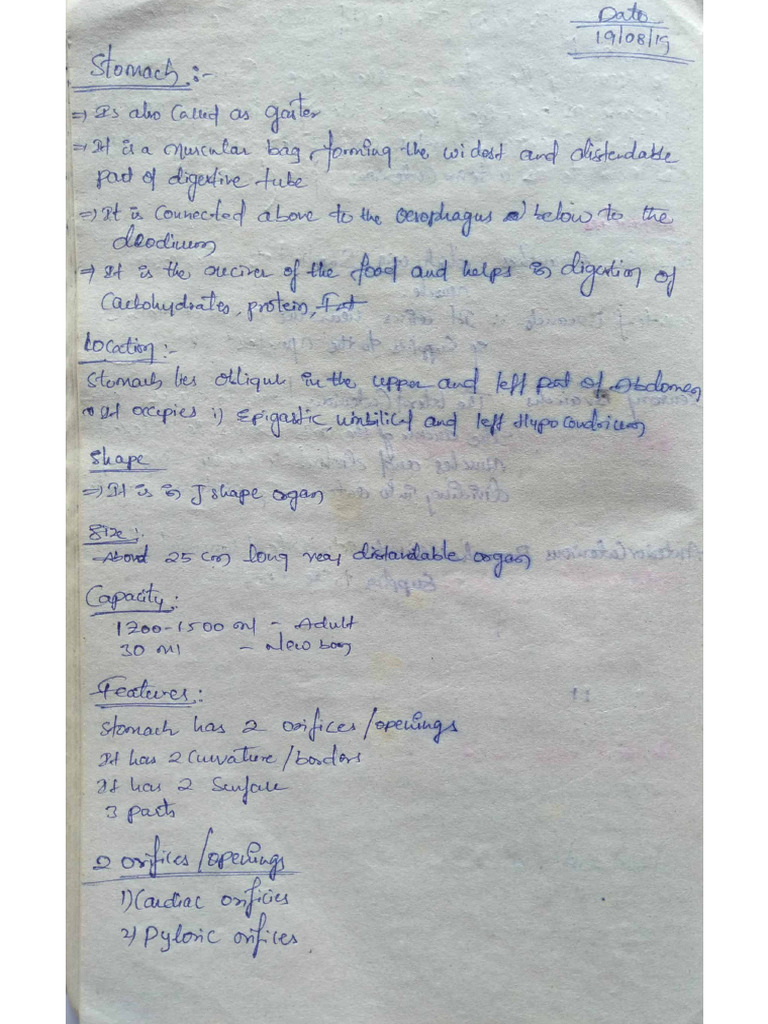 Date
19/08/19
Stomach :-
⇒ It is also Called as gaster
⇒ It is a muscular bag, forming the widest and distendable
part of digestive tube
⇒ It is Connected above to the oesophagus below to the
deodinum
⇒ It is the reciver of the food and helps in digestion of
Carbohydrates, protein, Fat
Location :-
Stomach lies oblique in the upper and left part of Abdomen
It occupies i) Epigastic, umbilical and left Hypocondricum
Shape
⇒ It is in J shape organ
Size :-
About 25 cm long very distandable organ
Capacity :
1200-1500 ml - Adult
30 ml - New born
Features :
Stomach has 2 orifices/openings
It has 2 Curvature/borders
It has 2 Surface
3 parts
2 orifices/openings
1) Cardiac orificies
2) Pyloric orifices